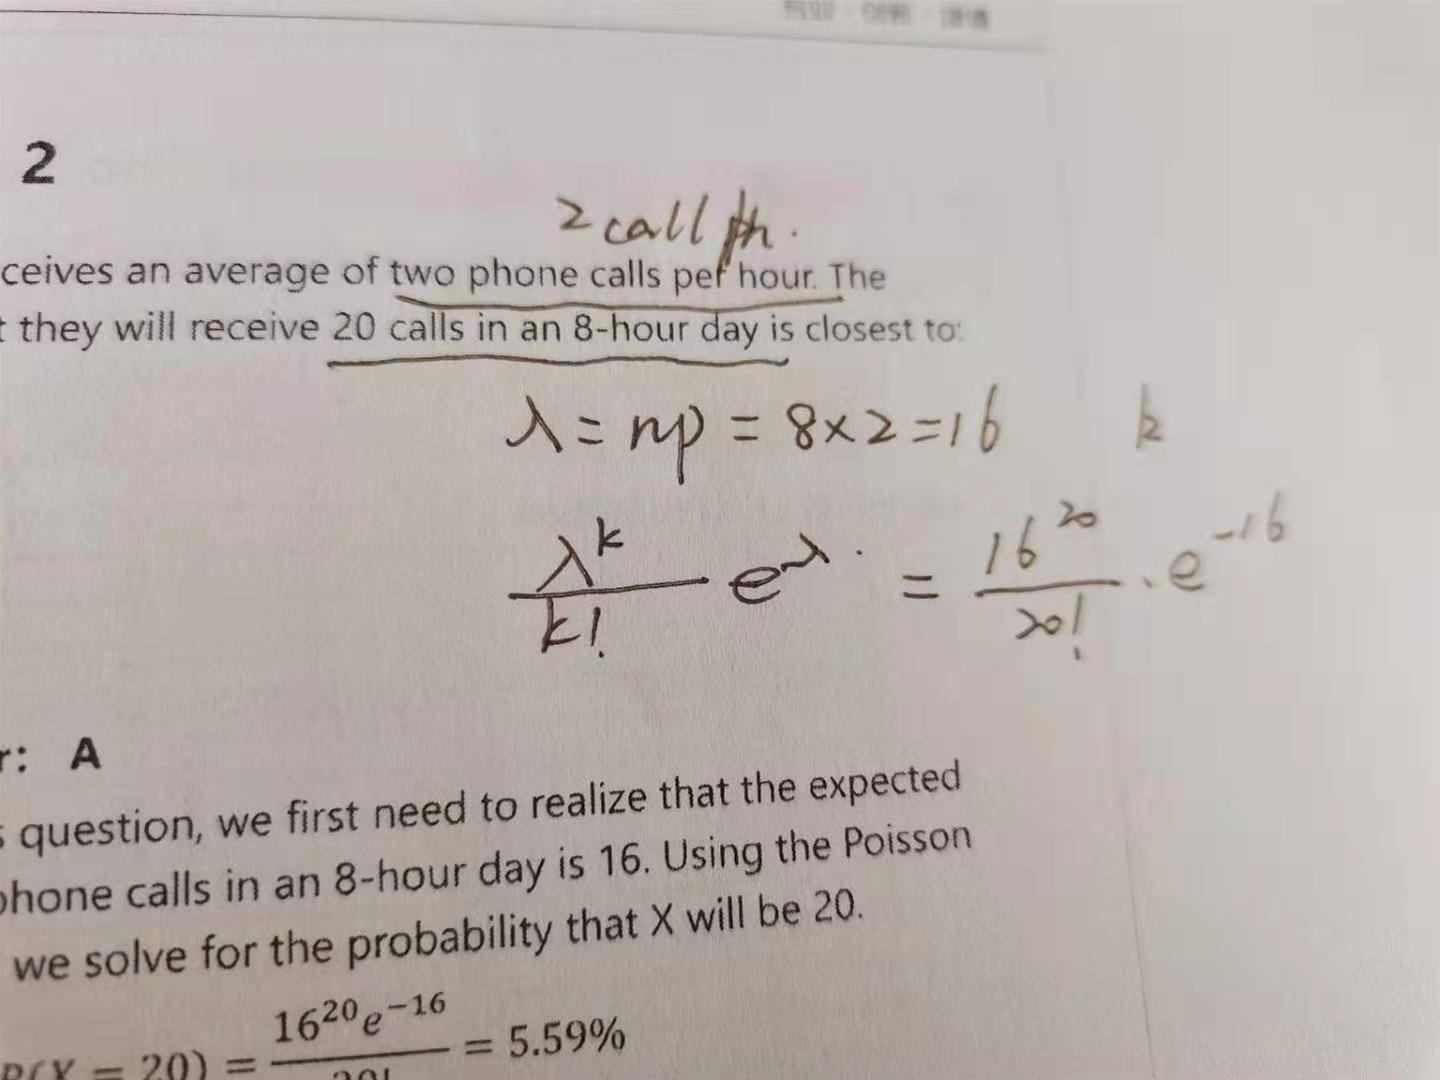 2
2 call ph.
ceives an average of two phone calls per hour. The
they will receive 20 calls in an 8-hour day is closest to:
λ = np = 8×2 = 16 k
λ^k / k! e^-λ. = 16^20 / 20! · e^-16
r: A
s question, we first need to realize that the expected
phone calls in an 8-hour day is 16. Using the Poisson
we solve for the probability that X will be 20.
P(X = 20) = 16^20 e^-16 / 20! = 5.59%